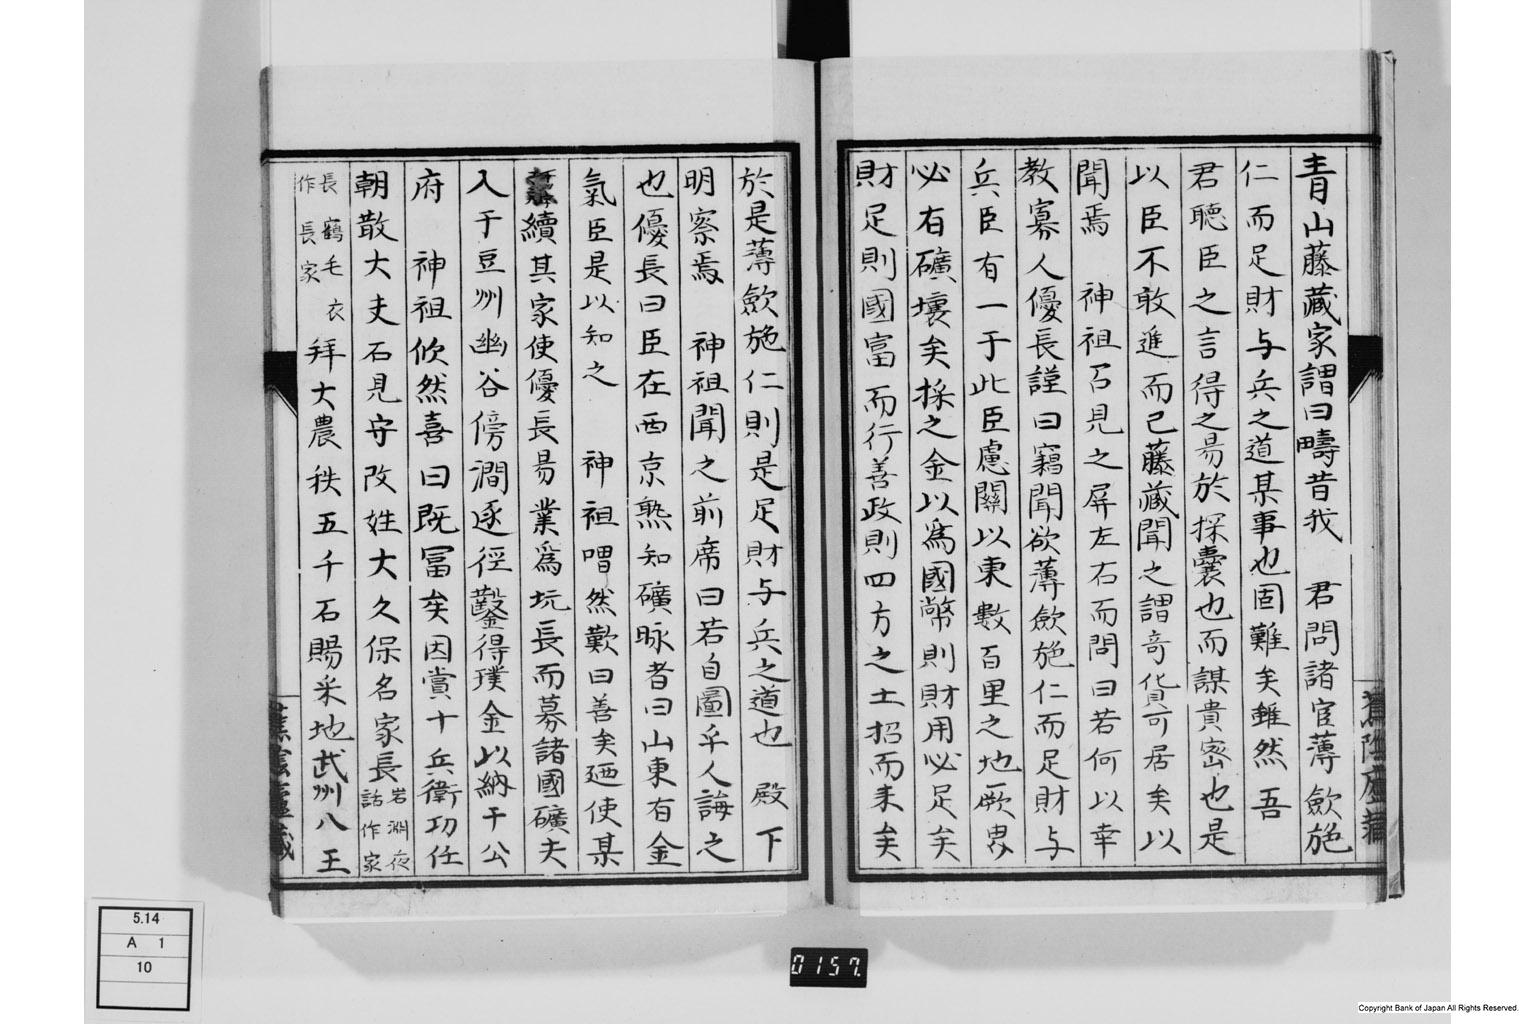 青山藤藏家謂曰疇昔我　君問諸官薄斂施
仁而足財与兵之道某事也固難矣雖然　吾
君聽臣之言得之易於探囊也而謀貴密也是
以臣不敢進而已藤藏聞之謂奇貨可居矣以
聞焉　神祖召見之屏左右而問曰若何以幸
教寡人優長謹曰竊聞欲薄斂施仁而足財与
兵臣有一于此臣慮關以東數百里之地厥畧
必有礦壤矣採之金以爲國幣則財用必足矣
財足則國富而行善政則四方之士招而来矣
於是薄斂施仁則是足財与兵之道也　殿下
明察焉　神祖聞之前席曰若自圖乎人誨之
也優長曰臣在西京熟知礦脉者曰山東有金
氣臣是以知之　神祖喟然歎曰善矣廼使某
續其家使優長易業爲坑長而募諸國礦夫
入于豆州幽谷傍澗逐徑鑿得璞金以納于公
府　神祖欣然喜曰既冨矣因賞十兵衛功任
朝散大夫石見守改姓大久保名家長岩淵夜
話作家
長鶴毛衣
作長家拜大農秩五千石賜采地武州八王
5.14
A 1
10
0157.
Copyright Bank of Japan All Rights Reserved.